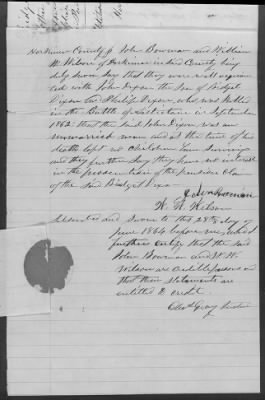 Herkimer County ss John Bowman and William
W. Wilson of Herkimer in the County being
duly sworn say that they were well acquain
ted with John Dixon the son of Bridget
Dixon
who was killed
in the Battle of
September
1862; that the said John Dixon was an
unmarried man and at the time of his
death left no children him surviving
and they further say they have no interest
in the prosecution of the pension claim
of the said Bridget Dixon
John Bowman
W. W. Wilson
Subscribed and sworn to this 28th day of
June 1864 before me, and I
further certify that the said
John Bowman and W. W.
Wilson are credible persons and
that their statements are
entitled to credit.
Gray